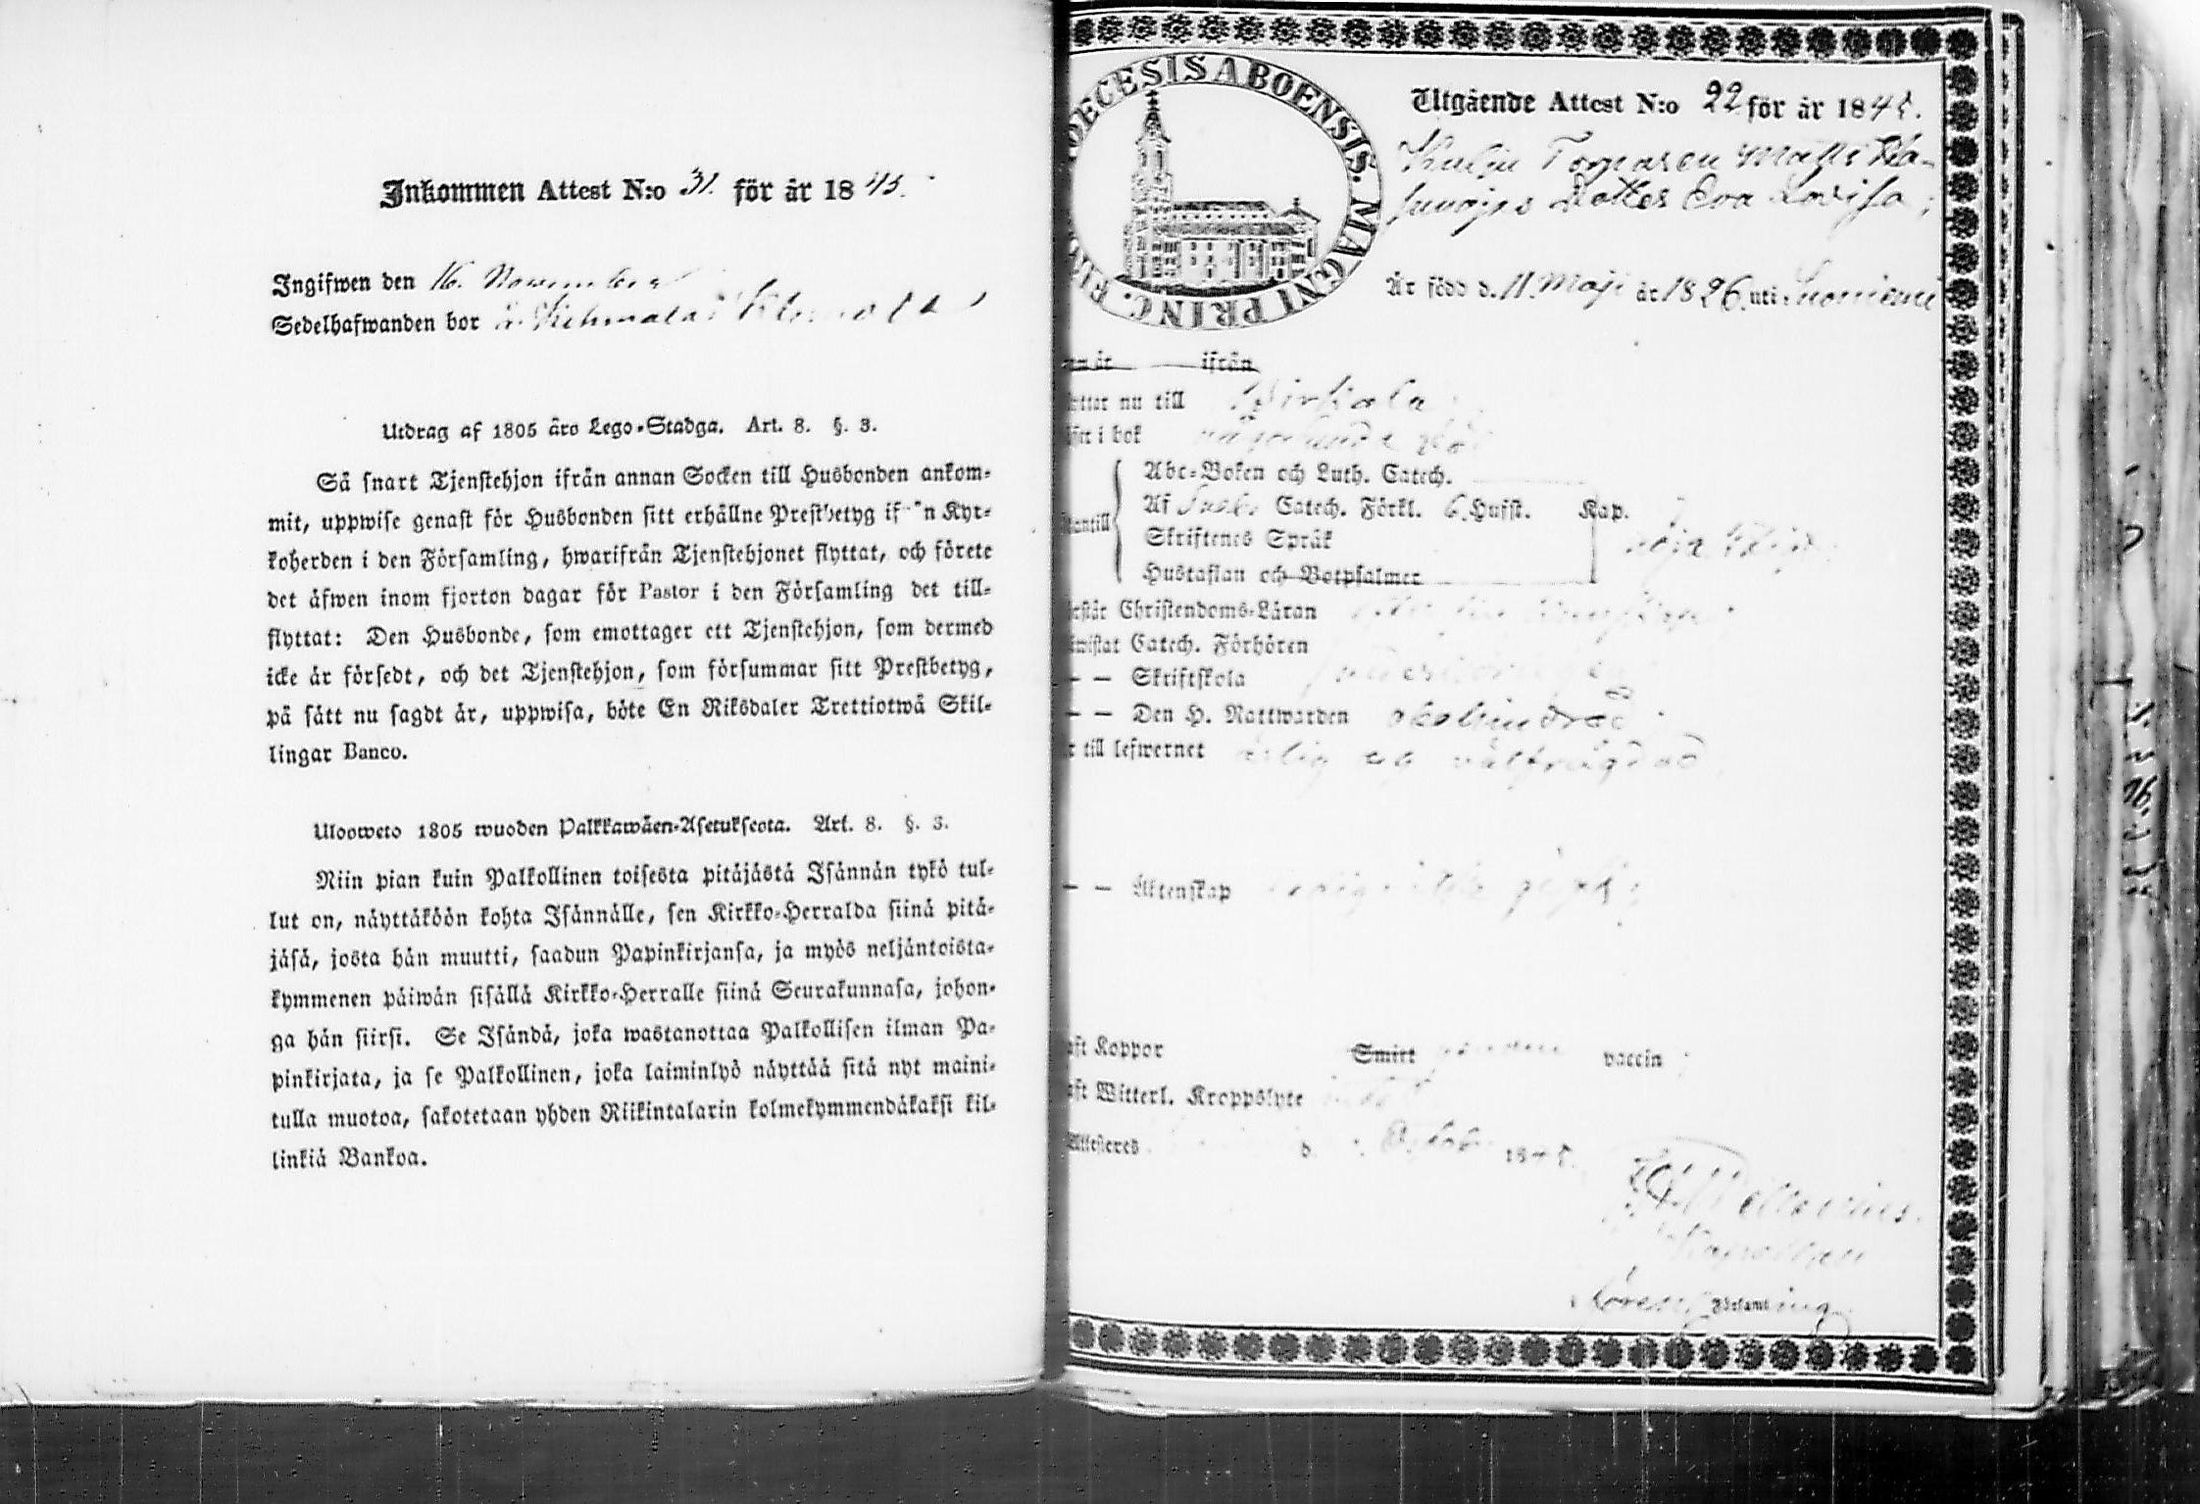 Inkommen Attest N:o 31. för år 1845.
Ingifwen den 16. November
Sedelhafwanden bor
Utdrag af 1805 års Lego-Stadga. Art. 8. §. 3.
Så snart Tjenstehjon ifrån annan Socken till Husbonden ankom-
mit, uppwise genast för Husbonden sitt erhållne Prestbetyg if n Kyr-
koherden i den Församling, hwarifrån Tjenstehjonet flyttat, och förete
det äfwen inom fjorton dagar för Pastor i den Församling det till-
flyttat: Den Husbonde, som emottager ett Tjenstehjon, som dermed
icke är försedt, och det Tjenstehjon, som försummar sitt Prestbetyg,
på sätt nu sagdt är, uppwisa, böte En Riksdaler Trettiotwå Skil-
lingar Banco.
Ulosweto 1805 wuoden Palkkawäen-Asetuksesta. Art. 8. §. 3.
Niin pian kuin Palkollinen toisesta pitäjästä Isännän tykö tul-
lut on, näyttäköön kohta Isännälle, sen Kirkko-Herralda siinä pitä-
jäsä, josta hän muutti, saadun Papinkirjansa, ja myös neljäntoista-
kymmenen päiwän sisällä Kirkko-Herralle siinä Seurakunnasa, johon-
ga hän siirsi. Se Isändä, joka wastanottaa Palkollisen ilman Pa-
pinkirjata, ja se Palkollinen, joka laiminlyö näyttää sitä nyt maini-
tulla muotoa, sakotetaan yhden Riikintalarin kolmekymmendäkaksi kil-
linkiä Bankoa.
ECESIS ABOENSIS. MAGNI PRINC. FIN
Utgående Attest N:o 22 för år 1845.
Matts
Dotter Eva Lovisa;
Är född d. 11. Maji år 1826. uti Suoniemi
år ifrån
nu till Birkala
i bok någorlunda
Abc-Boken och Luth. Catech.
Af Catech. Förkl. 6. Hufst. Kap.
Skriftenes Språk
Hustaflan och Botpsalmer
Christendoms-Läran
Catech. Förhören
— — Skriftskola
— — Den H. Nattwarden obehindrad
till lefwernet ärlig och välfrägdad
— — Äktenskap ledig
Koppor Smitt vaccin
Witterl. Kroppslyte
Attesteres d. 1845.
Församling